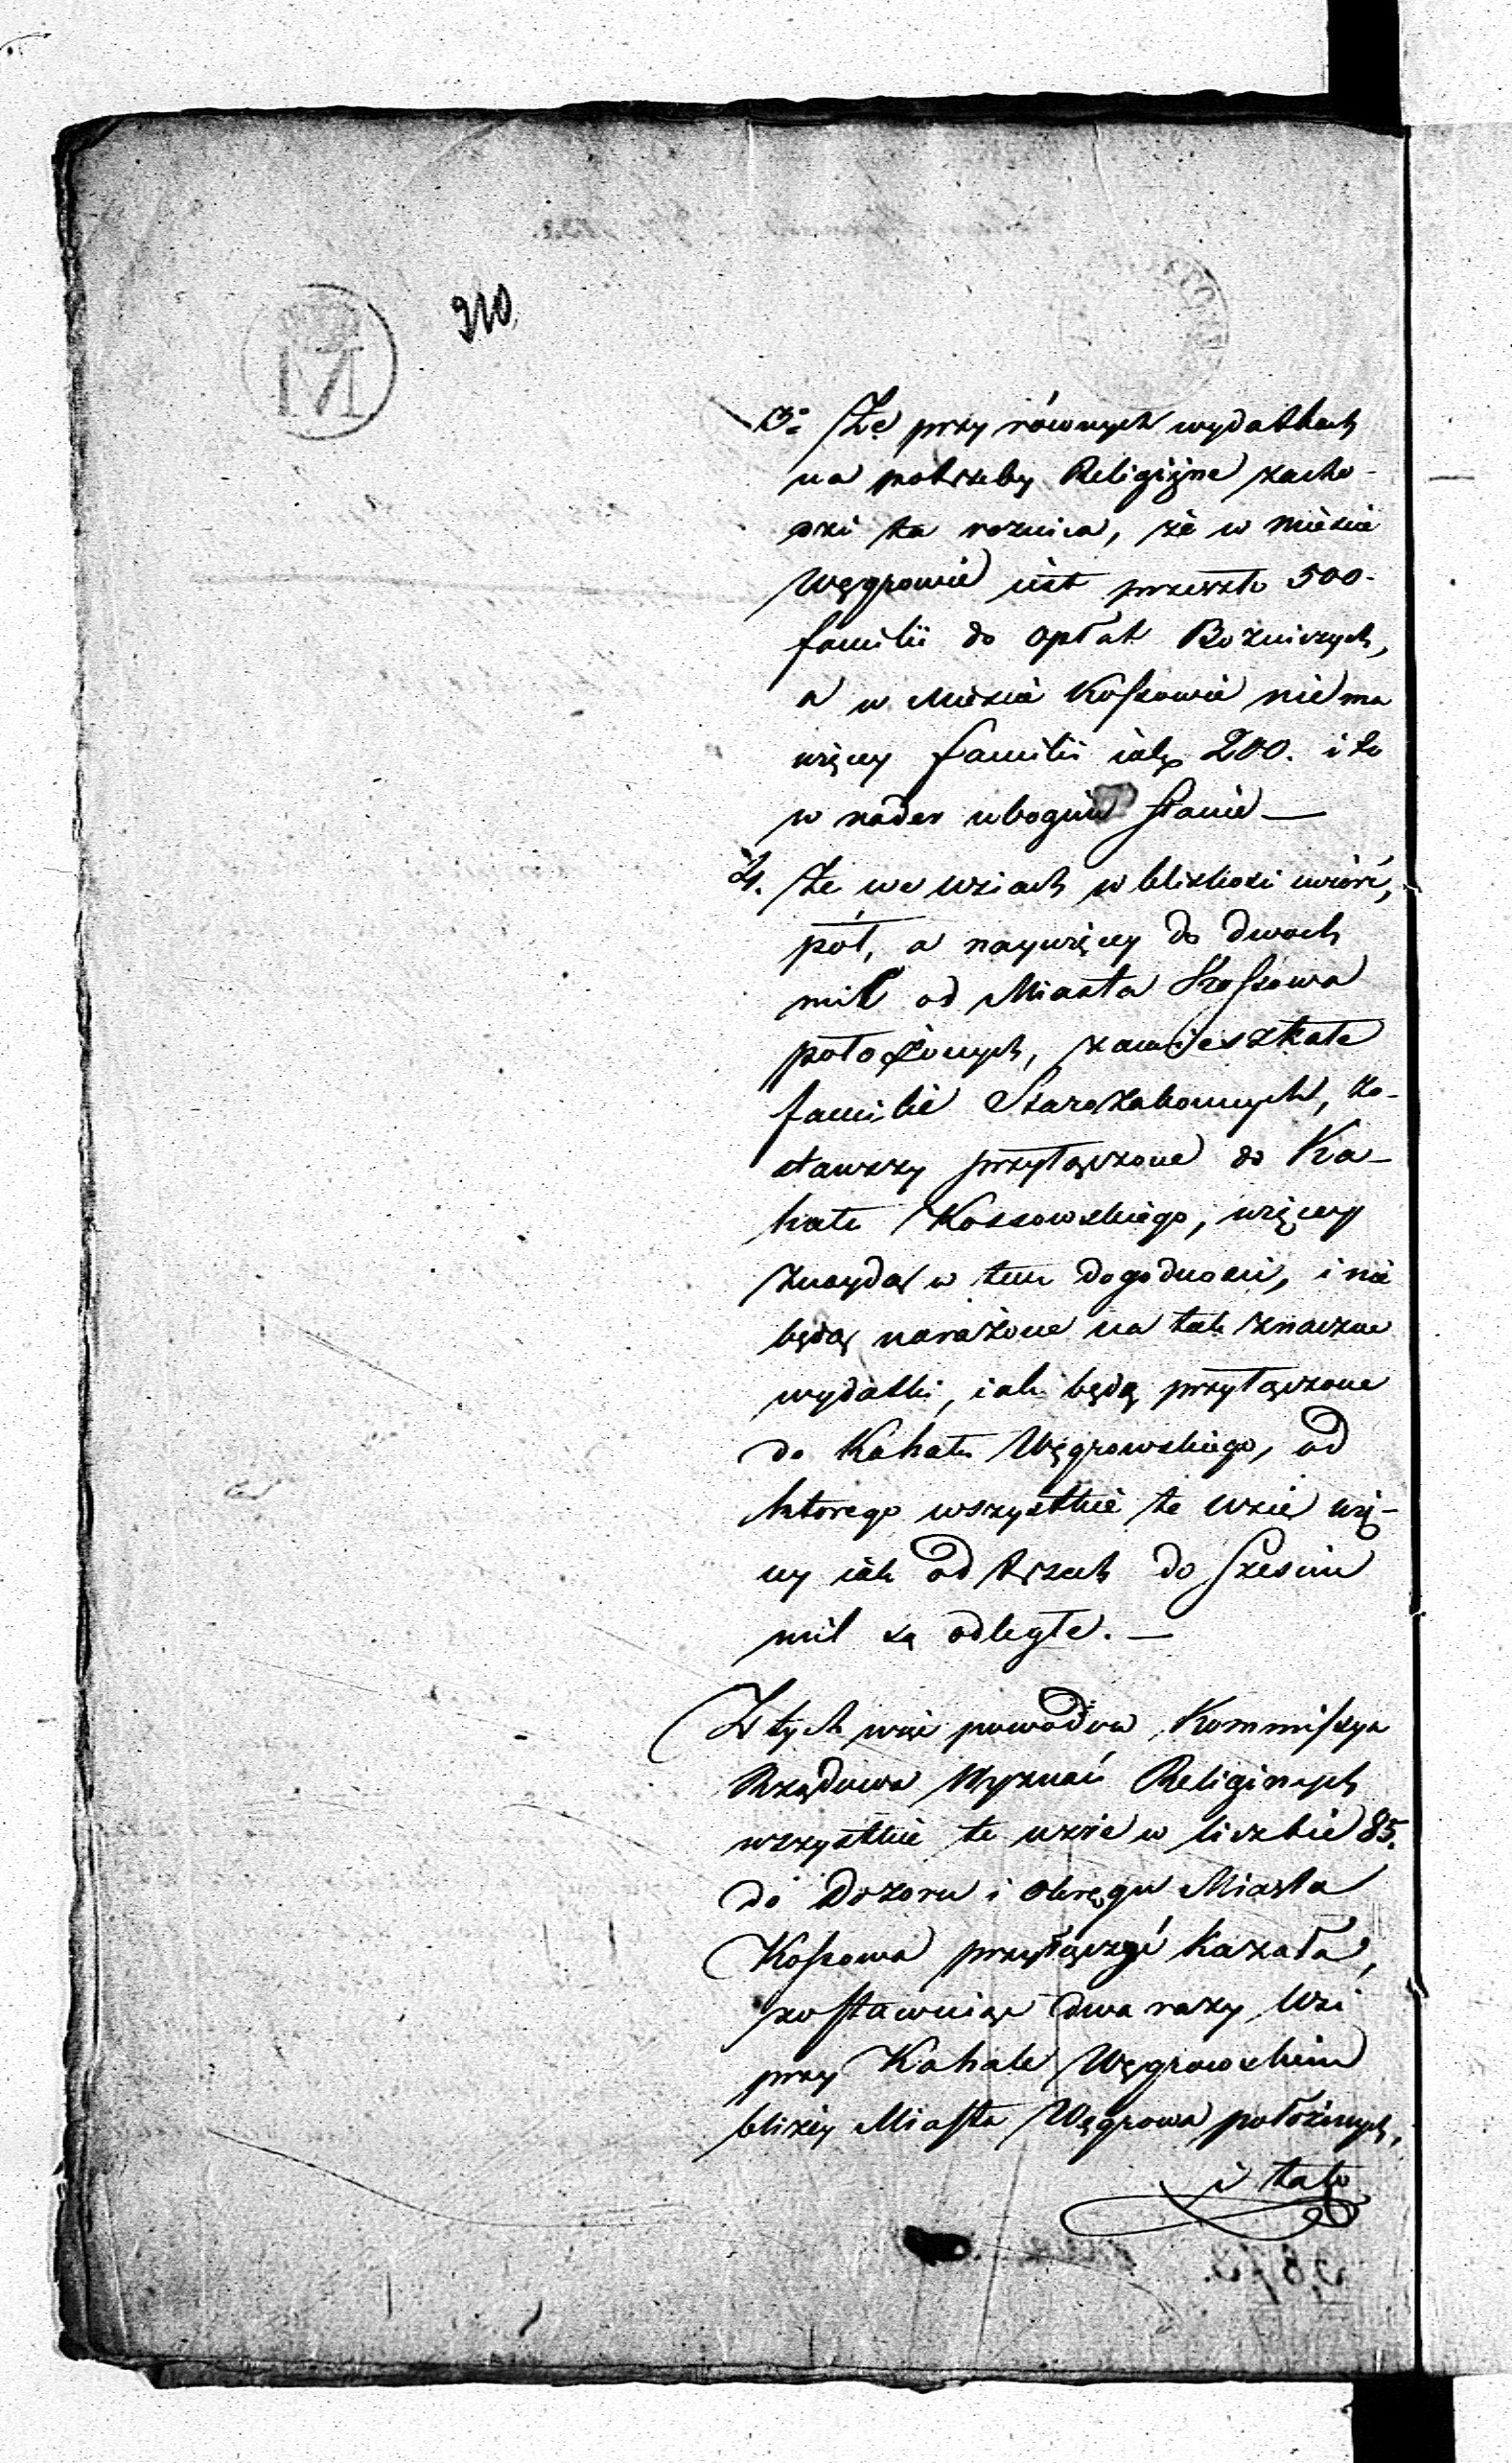 310.
3o Że przy równych wydatkach
na potrzeby Religijne zacho-
dzi ta roznica, że w mieście
Węgrowie iest przeszło 500.
familii do opłat Bożniczych,
a w Mieście Kossowie niema
więcey familii iak 200. i to
w nader ubogim stanie —
4. Że we wsiach w bliskości ćwierć,
pół, a naywięcey do dwoch
mil od Miasta Kossowa
położonych, zamieszkałe
familie Starozakonnych, zo-
stawszy przyłączone do Ka-
hału Kossowskiego, więcey
znaydą w tem dogodności, i nie
będą narażone na tak znaczne
wydatki, iak będą przyłączone
do Kahału Węgrowskiego, od
ktorego wszystkie te wsie wię-
cy iak od trzech do sześciu
mil są odległe. —
Z tych więc powodow Kommissya
Rządowa Wyznań Religinych
wszystkie te wsie w liczbie 85.
do Dozoru i Okręgu Miasta
Kossowa przyłączyć kazała,
zostawuiąc dwa razy Wsi
przy Kahale Węgrowskim
bliżey Miasta Węgrowa położonych,
i tak